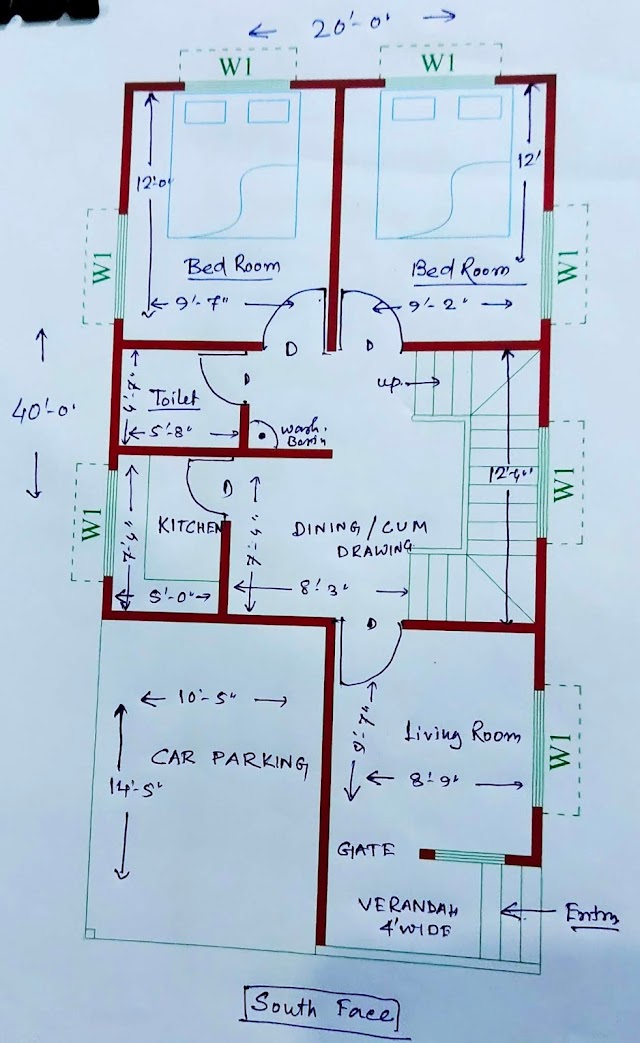 20'-0"
W1
W1
12'-0"
12'
Bed Room
Bed Room
W1
9'-7"
9'-2"
W1
D
D
40'-0"
4'-7"
Toilet
D
up.
5'-8"
Wash.
Basin
W1
D
12'-4"
W1
7'-4"
KITCHEN
7'-4"
DINING/CUM
DRAWING
5'-0"
8'-3"
D
10'-5"
9'-7"
Living Room
W1
CAR PARKING
14'-5"
8'-9"
GATE
VERANDAH
4'WIDE
Entry
South Face